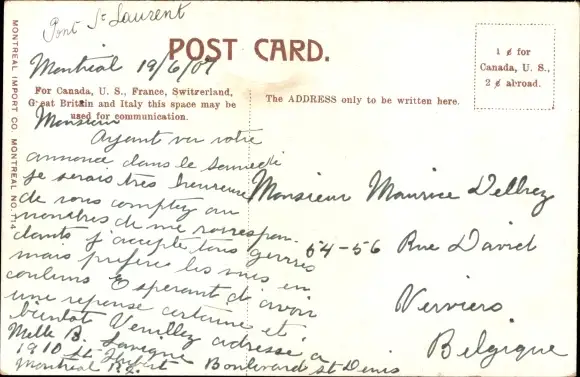 Pont St Laurent
Montréal 19/6/07
POST CARD.
1 ¢ for
Canada, U. S.,
2 ¢ abroad.
For Canada, U. S., France, Switzerland,
Great Britain and Italy this space may be
used for communication.
The ADDRESS only to be written here.
MONTREAL IMPORT CO. MONTREAL NO. 114
Monsieur
Ayant vu votre
annonce dans le samedi
je serais très heureuse
de vous compter au
nombres de me correspon-
dants j'accepte tous genres
mais préfère les vues en
couleurs Esperant d'avoir
une reponse certaine et
bientôt Veuillez adresse a
Melle B. Lavigne
1910 Boulevard St Denis
Montreal
Monsieur Maurice Delrez
54-56 Rue David
Verviers
Belgique